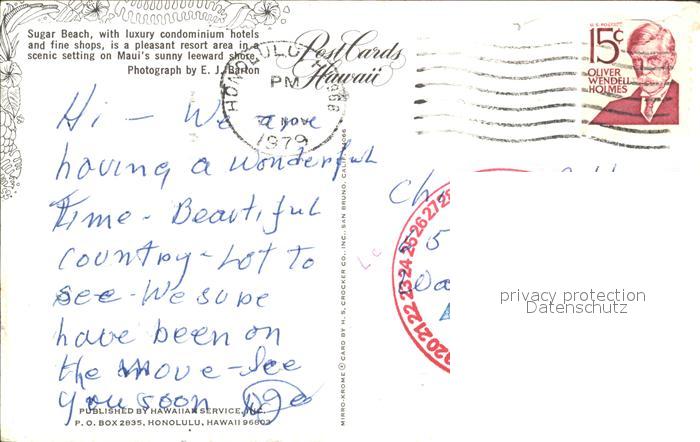 Sugar Beach, with luxury condominium hotels
and fine shops, is a pleasant resort area in a
scenic setting on Maui's sunny leeward shore.
Photograph by E. J. Barton
Post Cards
Hawaii
HONOLULU, HI 968
PM
NOV
1979
U.S. POSTAGE
15c
OLIVER
WENDELL
HOLMES
Hi - We are
having a wonderful
time - Beautiful
country - Lot to
see - We sure
have been on
the move - See
you soon
PUBLISHED BY HAWAIIAN SERVICE, INC.
P. O. BOX 2835, HONOLULU, HAWAII 96803
MIRRO-KROME © CARD BY H. S. CROCKER CO., INC., SAN BRUNO, CALIF. 94066
Ch
5
20 21 22 23 24 25 26 27 28
privacy protection
Datenschutz